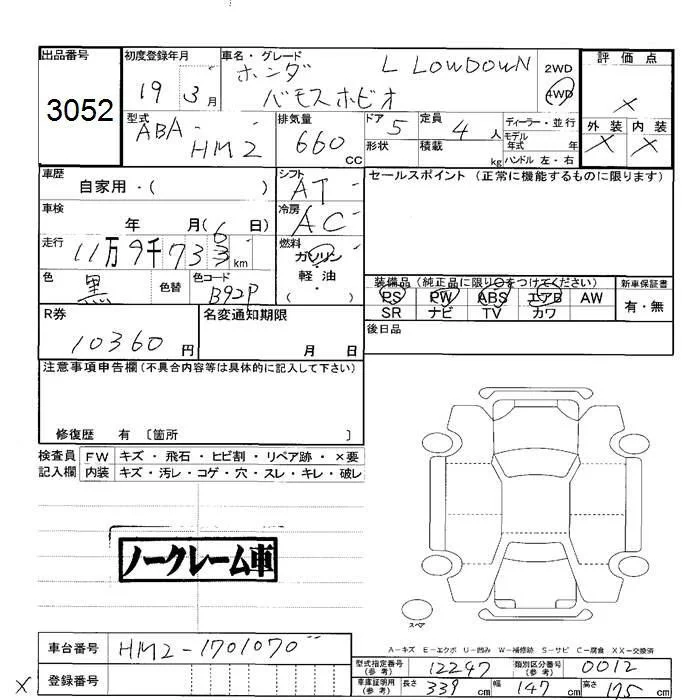 出品番号 3052
初度登録年月 19 3月
車名・グレード ホンダ L LOWDOWN
バモスホビオ
2WD
4WD
評価点 ×
型式 ABA-HM2
排気量 660 cc
ドア 5
定員 4人
形状
積載 kg
ディーラー・並行
モデル年式 年
ハンドル 左・右
外装 内装
× ×
車歴 自家用・( )
シフト AT
セールスポイント (正常に機能するものに限ります)
車検 年 月(6日)
冷房 AC
走行 11万9千733km
燃料 ガソリン・軽油・( )
色 黒 色替
色コード B92P
装備品 (純正品に限り○をつけてください)
新車保証書
PS PW ABS エアB AW
SR ナビ TV カワ
有・無
R券 10360円
名変通知期限 月 日
後日品
注意事項申告欄 (不具合内容等は具体的に記入して下さい)
修復歴 有 〔箇所 〕
検査員記入欄
FW キズ・飛石・ヒビ割・リペア跡・×要
内装 キズ・汚レ・コゲ・穴・スレ・キレ・破レ
ノークレーム車
スペア
A-キズ E-エクボ U-凹み W-補修跡 S-サビ C-腐食 XX-交換済
車台番号 HM2-1701070
型式指定番号(参考) 12247
類別区分番号(参考) 0012
× 登録番号
車庫証明用(参考) 長さ 339cm 幅 147cm 高さ 175cm